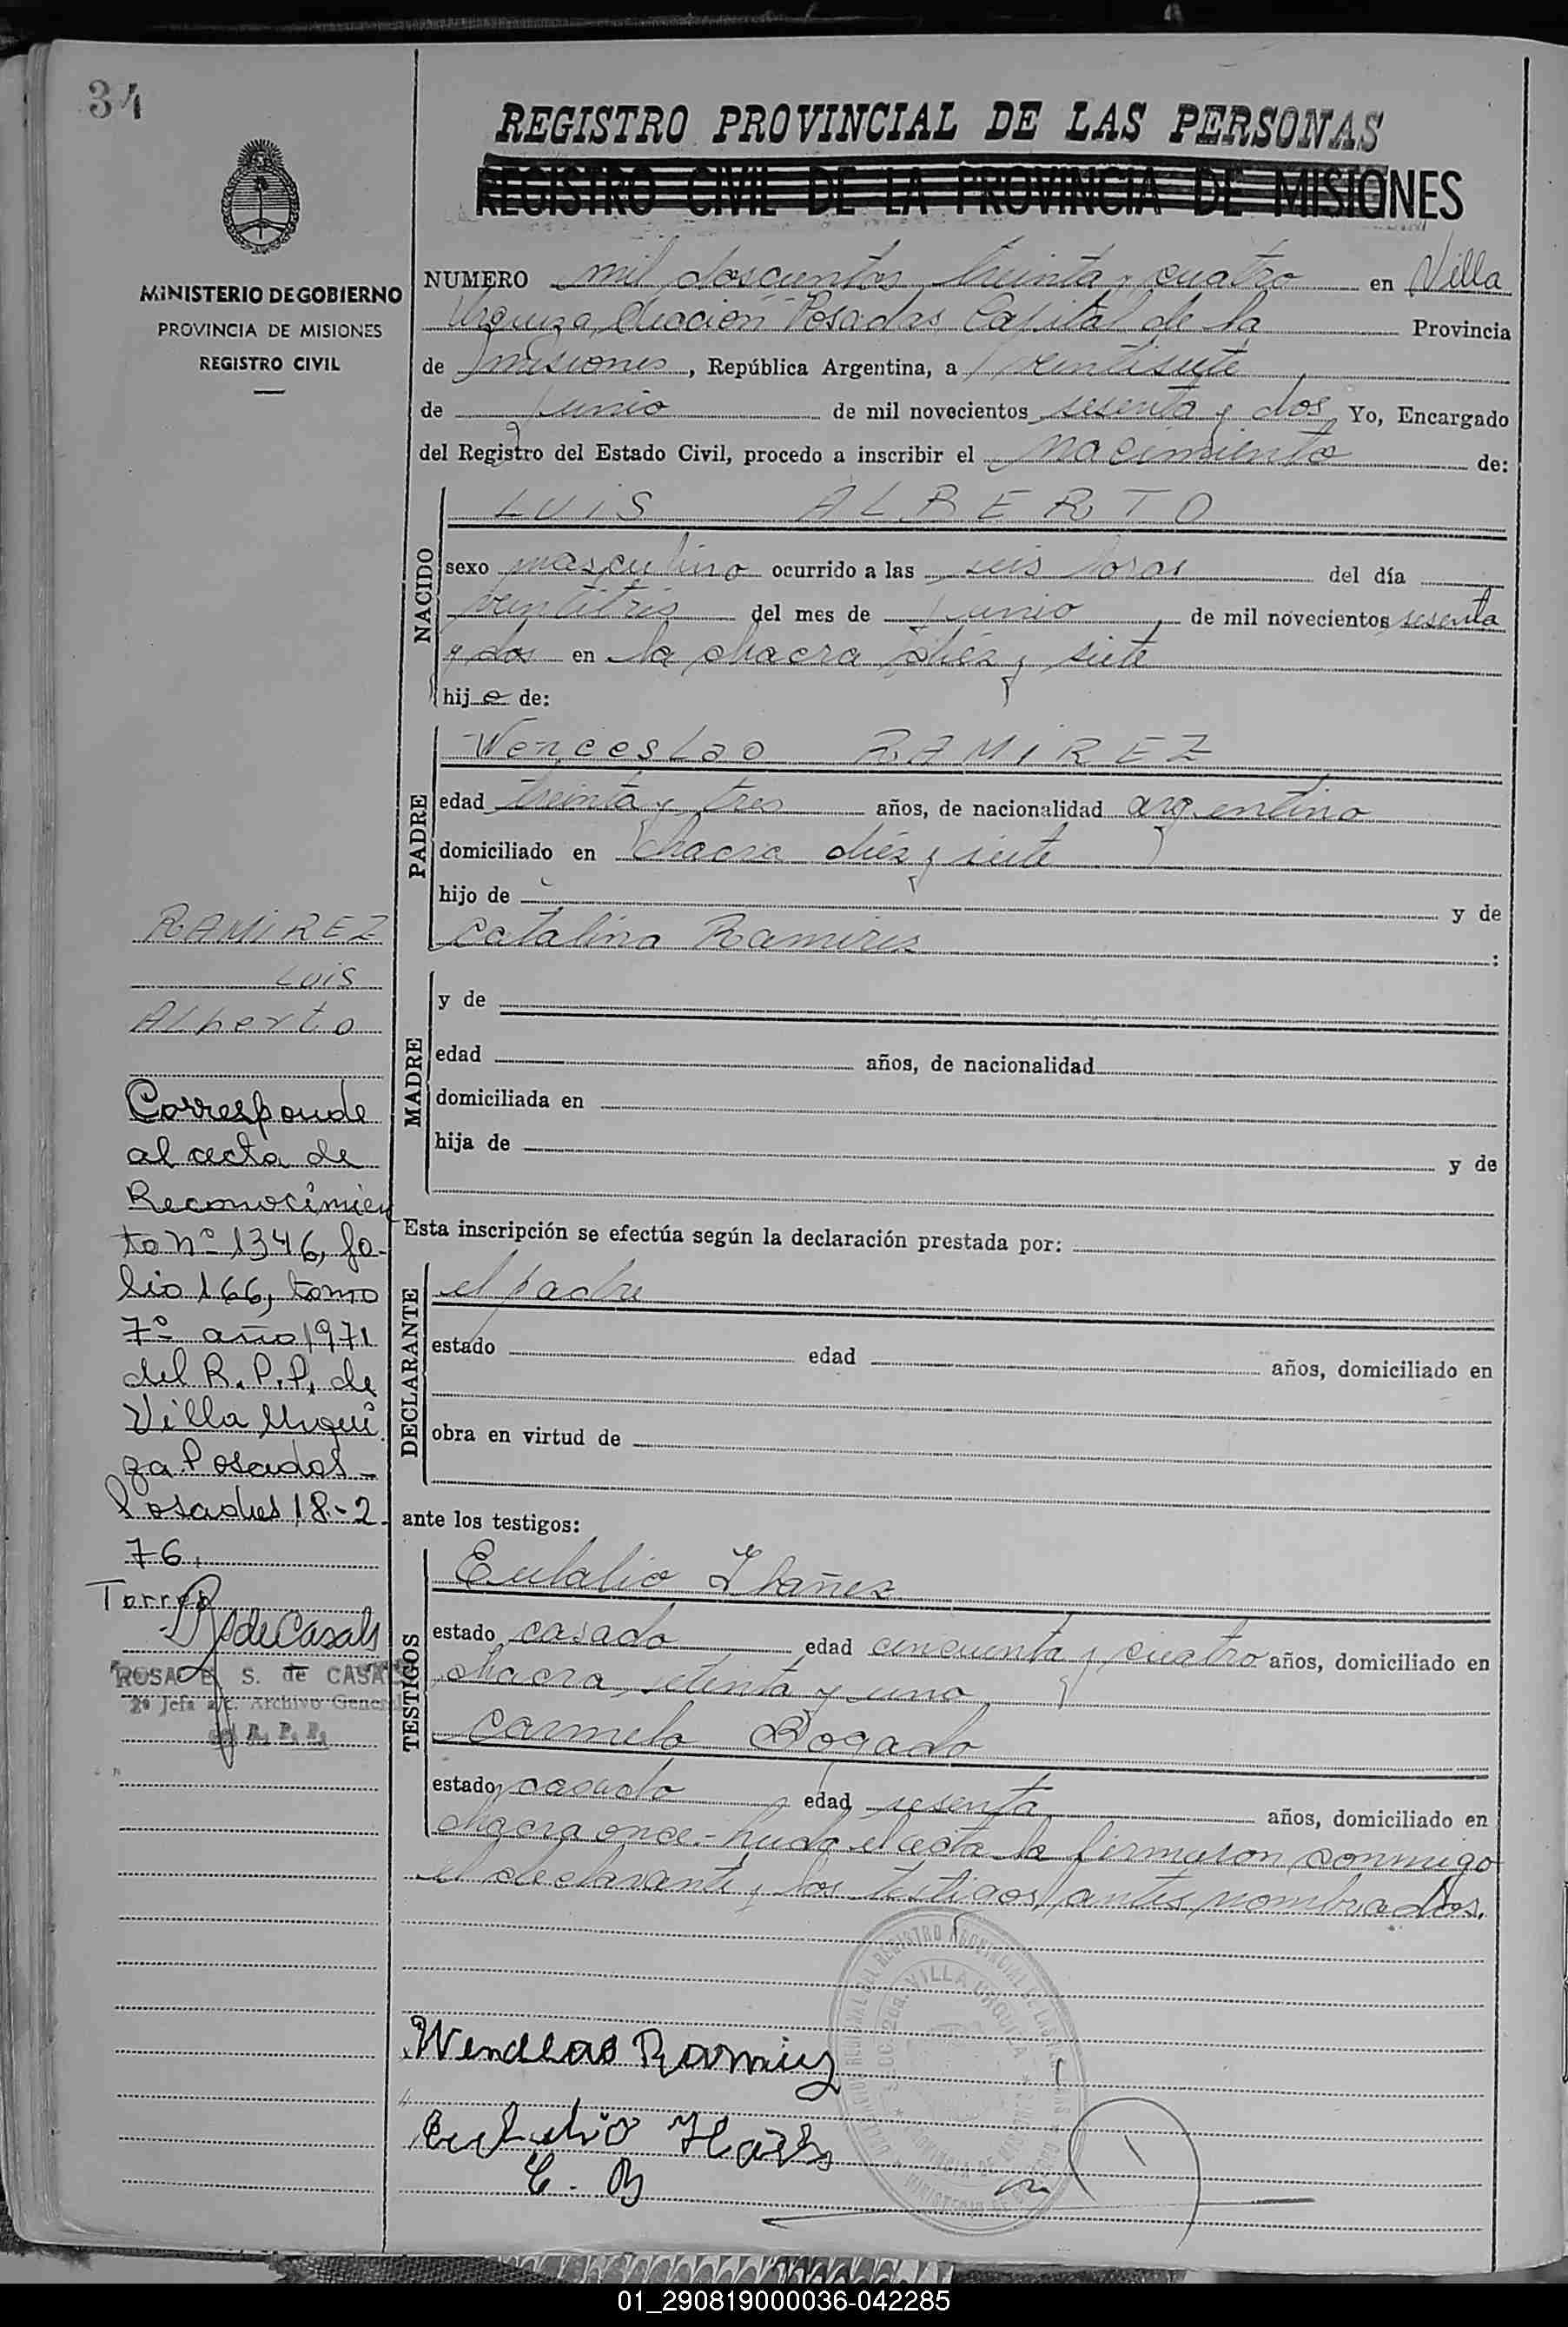 34
REGISTRO PROVINCIAL DE LAS PERSONAS
REGISTRO CIVIL DE LA PROVINCIA DE MISIONES
MINISTERIO DE GOBIERNO
PROVINCIA DE MISIONES
REGISTRO CIVIL
NUMERO mil doscientos treinta y cuatro en Villa
Urquiza Sección Posadas Capital de la Provincia
de Misiones, República Argentina, a veintisiete
de junio de mil novecientos sesenta y dos Yo, Encargado
del Registro del Estado Civil, procedo a inscribir el nacimiento de:
NACIDO
LUIS ALBERTO
sexo masculino ocurrido a las seis horas del día
veintitrés del mes de junio de mil novecientos sesenta
y dos en la chacra diéz y siete
hijo de:
PADRE
Wenceslao RAMIREZ
edad treinta y tres años, de nacionalidad argentino
domiciliado en chacra diéz y siete
hijo de y de
Catalina Ramires :
MADRE
y de
edad años, de nacionalidad
domiciliada en
hija de y de
Esta inscripción se efectúa según la declaración prestada por:
DECLARANTE
el padre
estado edad años, domiciliado en
obra en virtud de
ante los testigos:
TESTIGOS
Eulalio Ibañez
estado casado edad cincuenta y cuatro años, domiciliado en
chacra setenta y uno
Carmelo Bogado
estado casado edad sesenta años, domiciliado en
chacra once.- leida el acta la firmaron conmigo
el declarante y los testigos antes nombrados.
RAMIREZ
Luis
Alberto
Corresponde
al acta de
Reconocimien
to nº 1346, fo-
lio 166, tomo
7º año 1971
del R. P. P. de
Villa Urqui
za Posadas -
Posadas 18-2-
76.
Torres
RdeCasals
ROSA E. S. de CASALS
2ª Jefa a/c. Archivo General
del R. P. P.
Wenclao Ramirez
Eulalio
C. B
VILLA URQUIZA
01_290819000036-042285